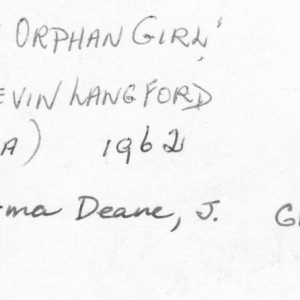 ORPHAN GIRL"
EVIN LANGFORD
A) 1962
rma Deane, J. G